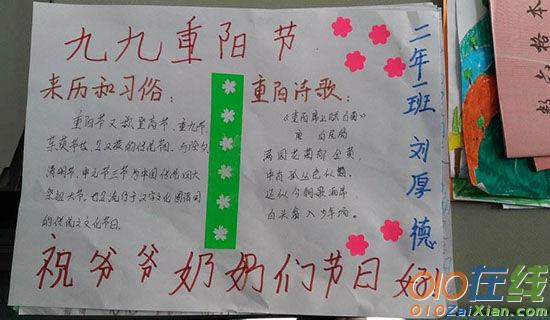 九九重阳节
来历和习俗：
重阳节又叫登高节、重九节、
茱萸节也是汉族的传统节日，与除夕
清明节、中元节三节为中国传统四大
祭祖大节，也是流行于汉字文化圈诸国
的传统文化节日。
重阳诗歌：
满园花菊郁金黄，
中有孤丛色似霜
还似今朝歌酒席
白头翁入少年场。
二年一班 刘厚德
祝爷爷奶奶们节日好
格本
010在线
010ZaiXian.com